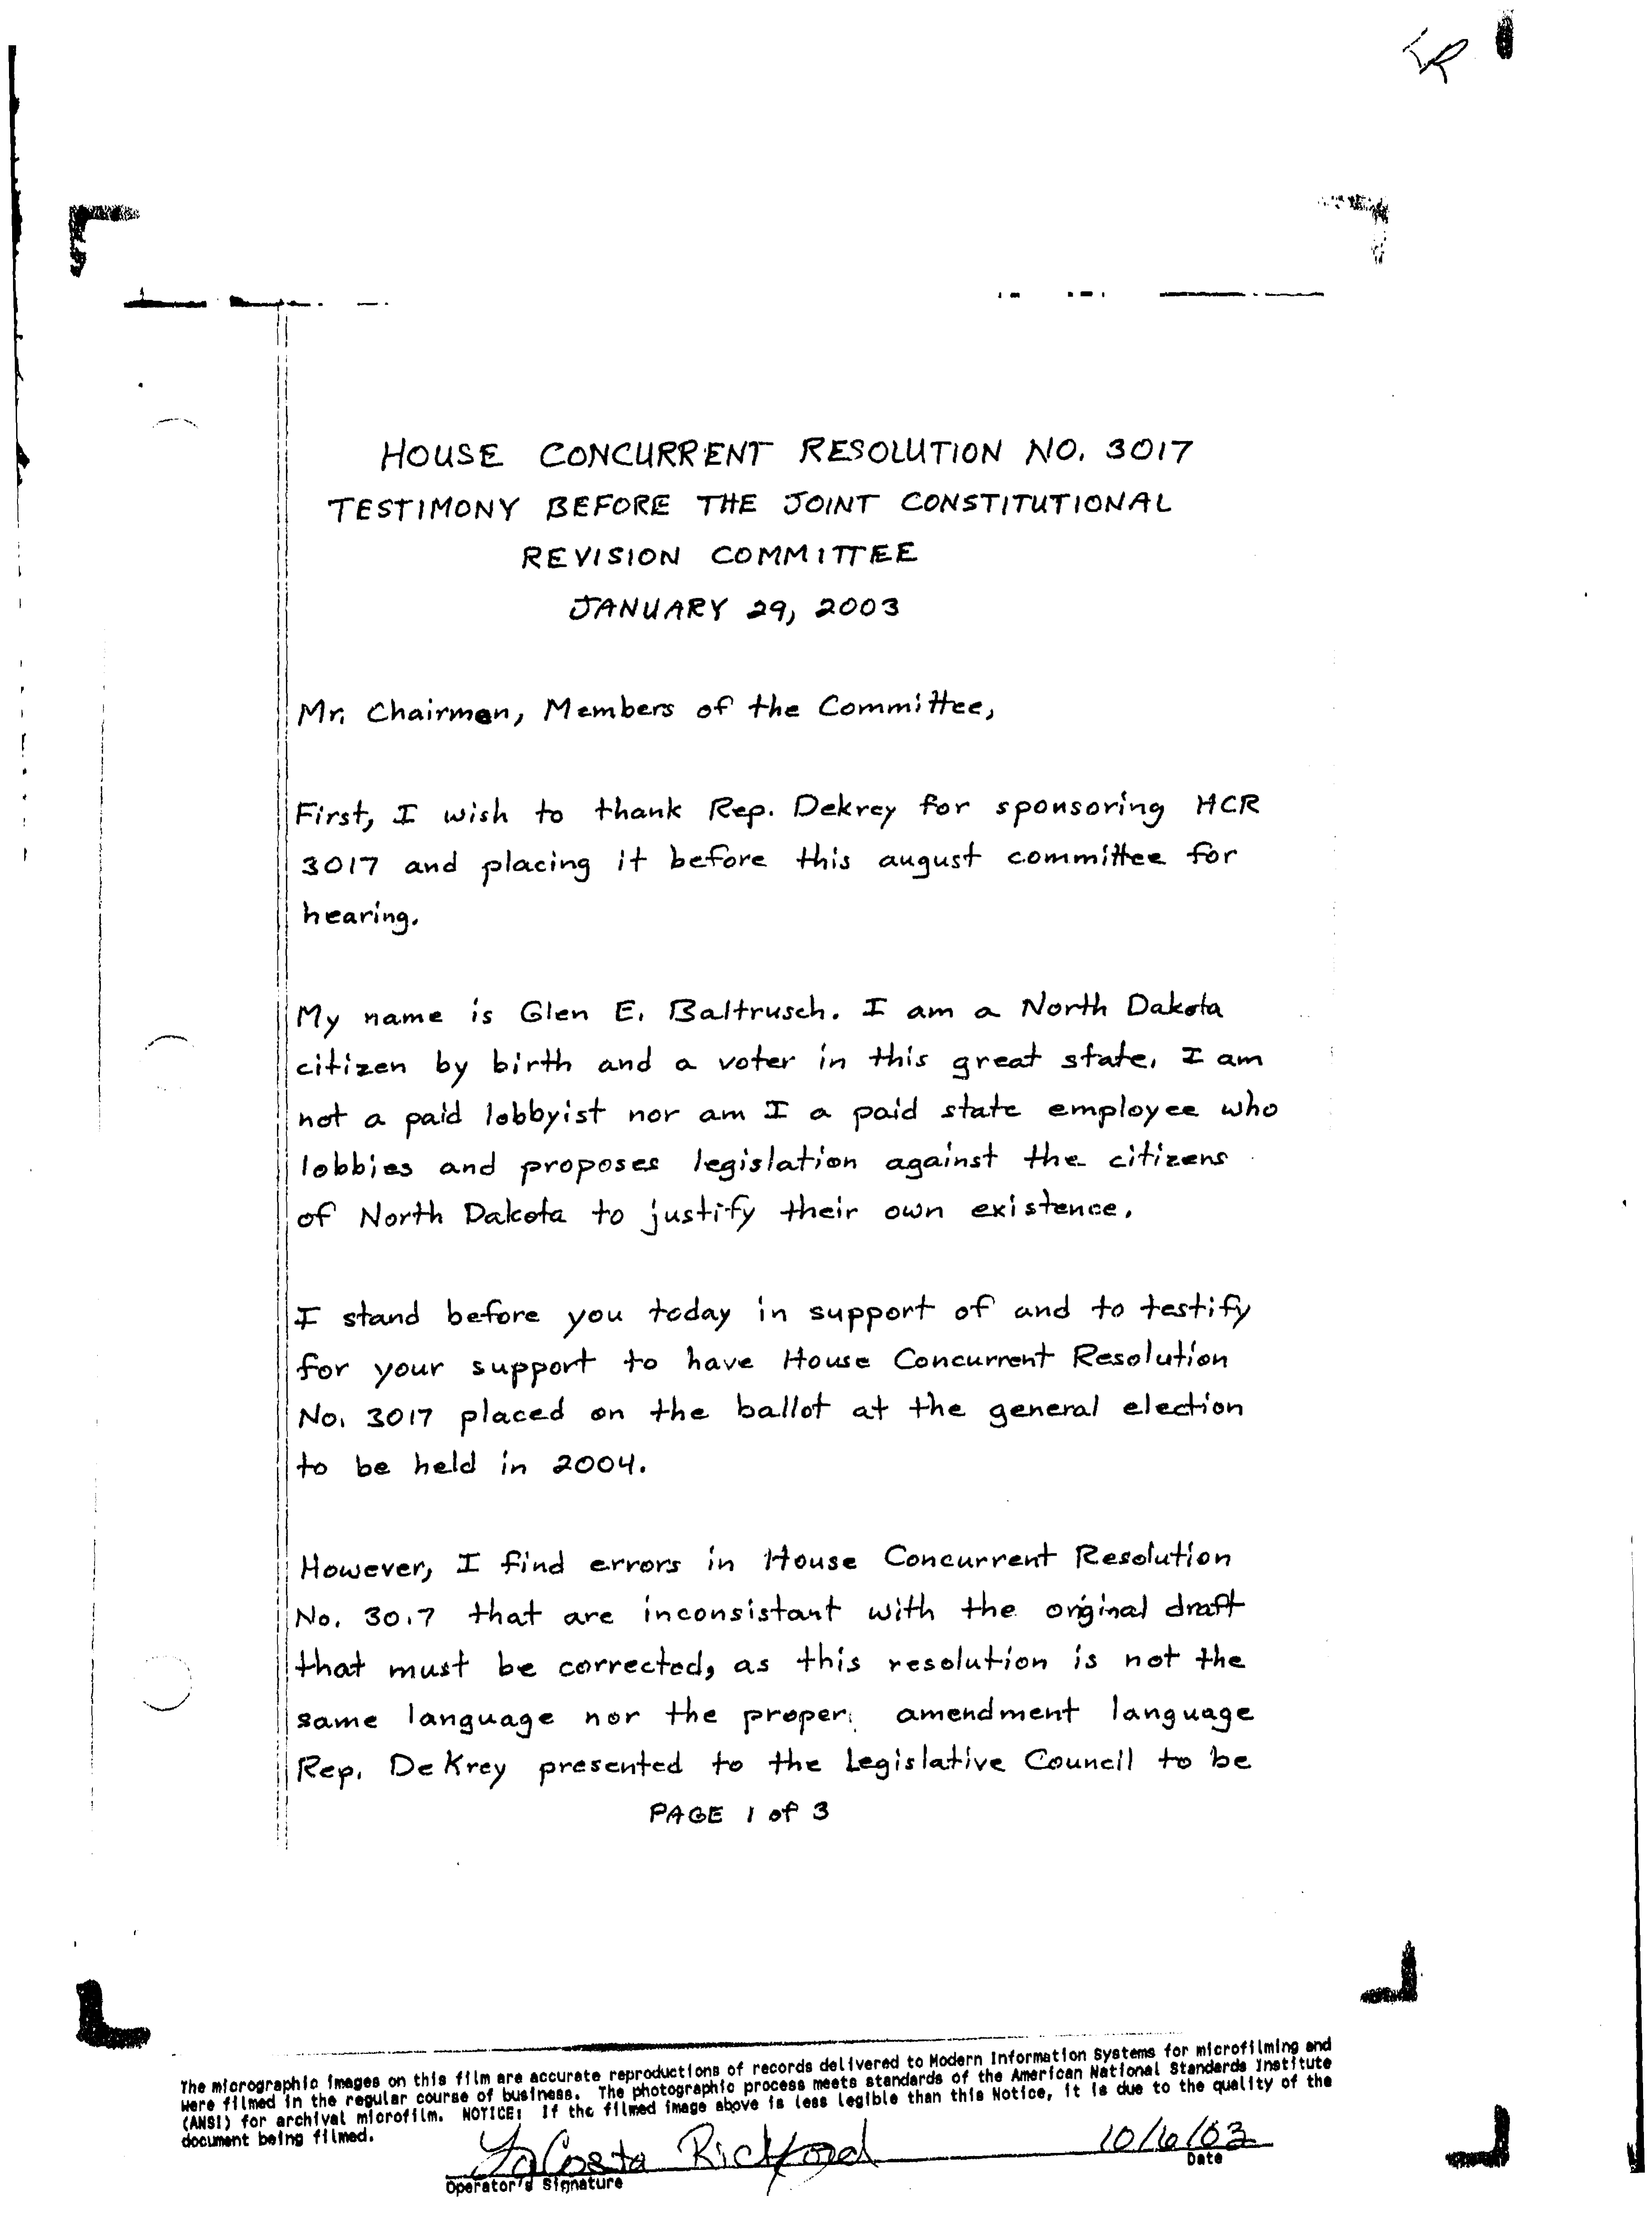 HOUSE CONCURRENT RESOLUTION NO. 3017
TESTIMONY BEFORE THE JOINT CONSTITUTIONAL
REVISION COMMITTEE
JANUARY 29, 2003
Mr. Chairman, Members of the Committee,
First, I wish to thank Rep. Dekrey for sponsoring HCR
3017 and placing it before this august committee for
hearing.
My name is Glen E. Baltrusch. I am a North Dakota
citizen by birth and a voter in this great state. I am
not a paid lobbyist nor am I a paid state employee who
lobbies and proposes legislation against the citizens
of North Dakota to justify their own existence.
I stand before you today in support of and to testify
for your support to have House Concurrent Resolution
No. 3017 placed on the ballot at the general election
to be held in 2004.
However, I find errors in House Concurrent Resolution
No. 3017 that are inconsistant with the original draft
that must be corrected, as this resolution is not the
same language nor the proper amendment language
Rep. DeKrey presented to the Legislative Council to be
PAGE 1 of 3
The micrographic images on this film are accurate reproductions of records delivered to Modern Information Systems for microfilming and
were filmed in the regular course of business. The photographic process meets standards of the American National Standards Institute
(ANSI) for archival microfilm. NOTICE: If the filmed image above is less legible than this Notice, it is due to the quality of the
document being filmed.
LaCosta Rickford 10/6/03
Operator's Signature Date